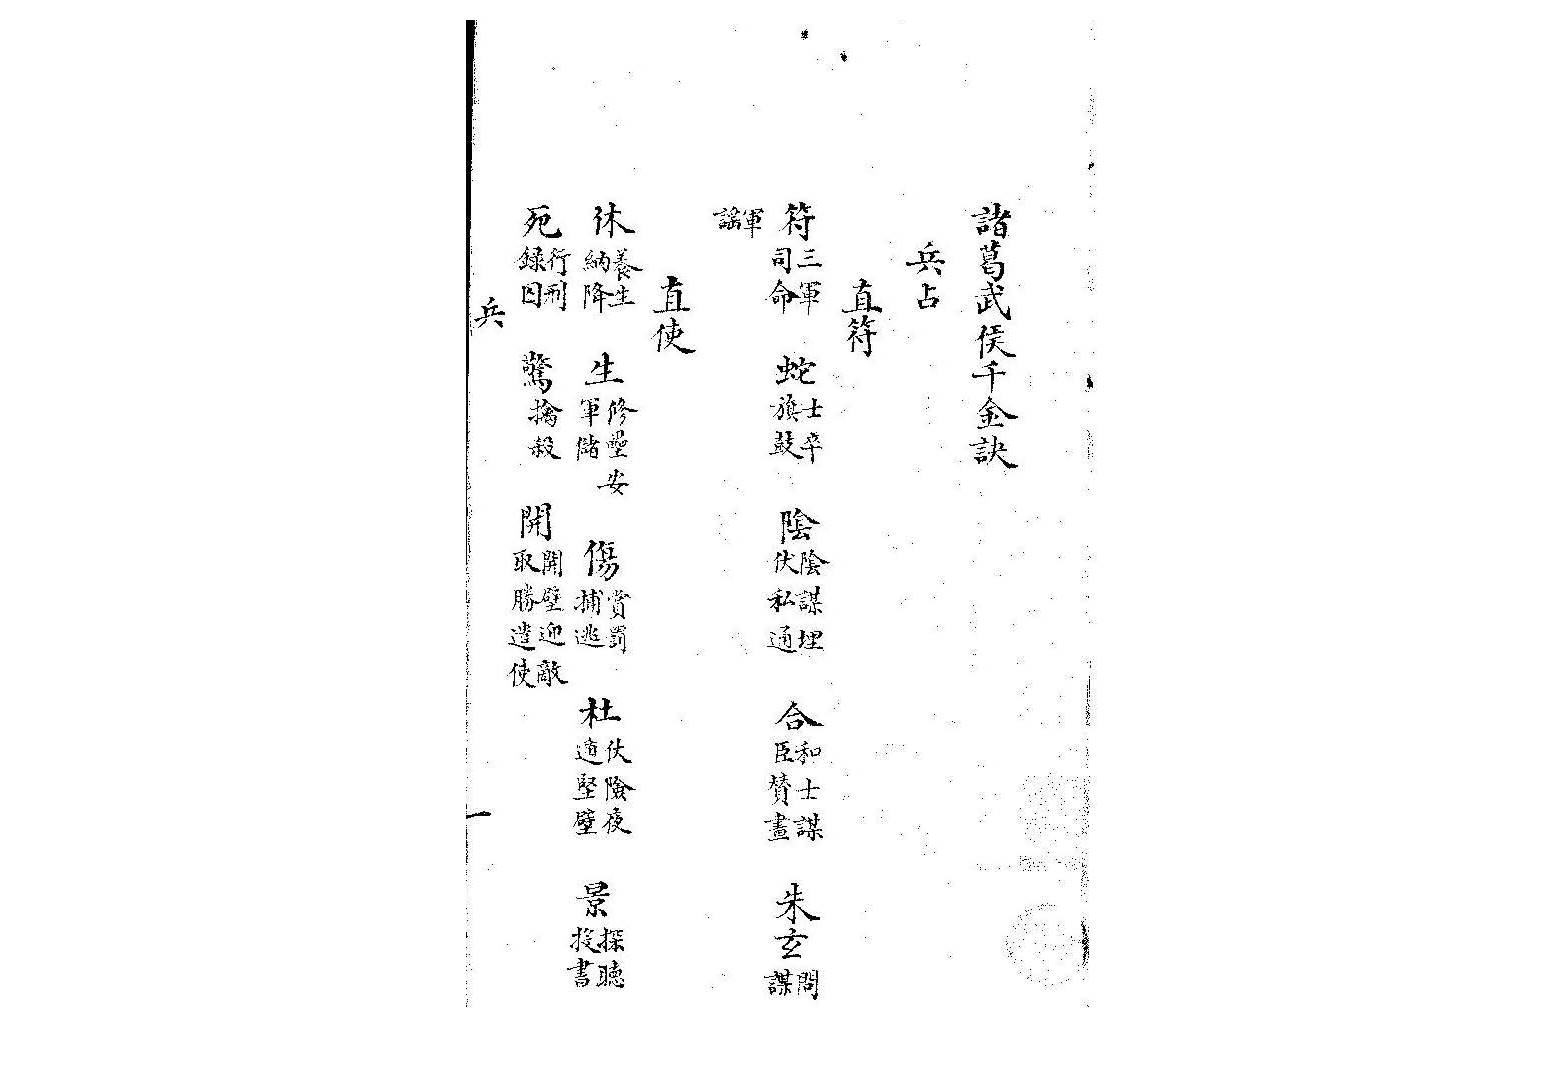 諸葛武侯千金訣
兵占
直符
符三軍司命 蛇士卒旗鼓 陰陰謀埋伏私通 合和士謀臣贊畫 朱玄問謀
軍謠
直使
休養生納降 生修壘安軍儲 傷賞罰捕逃 杜伏險夜遁堅壁 景探聽投書
死行刑録囚 驚擒殺 開開壁迎敵取勝遣使
兵 一